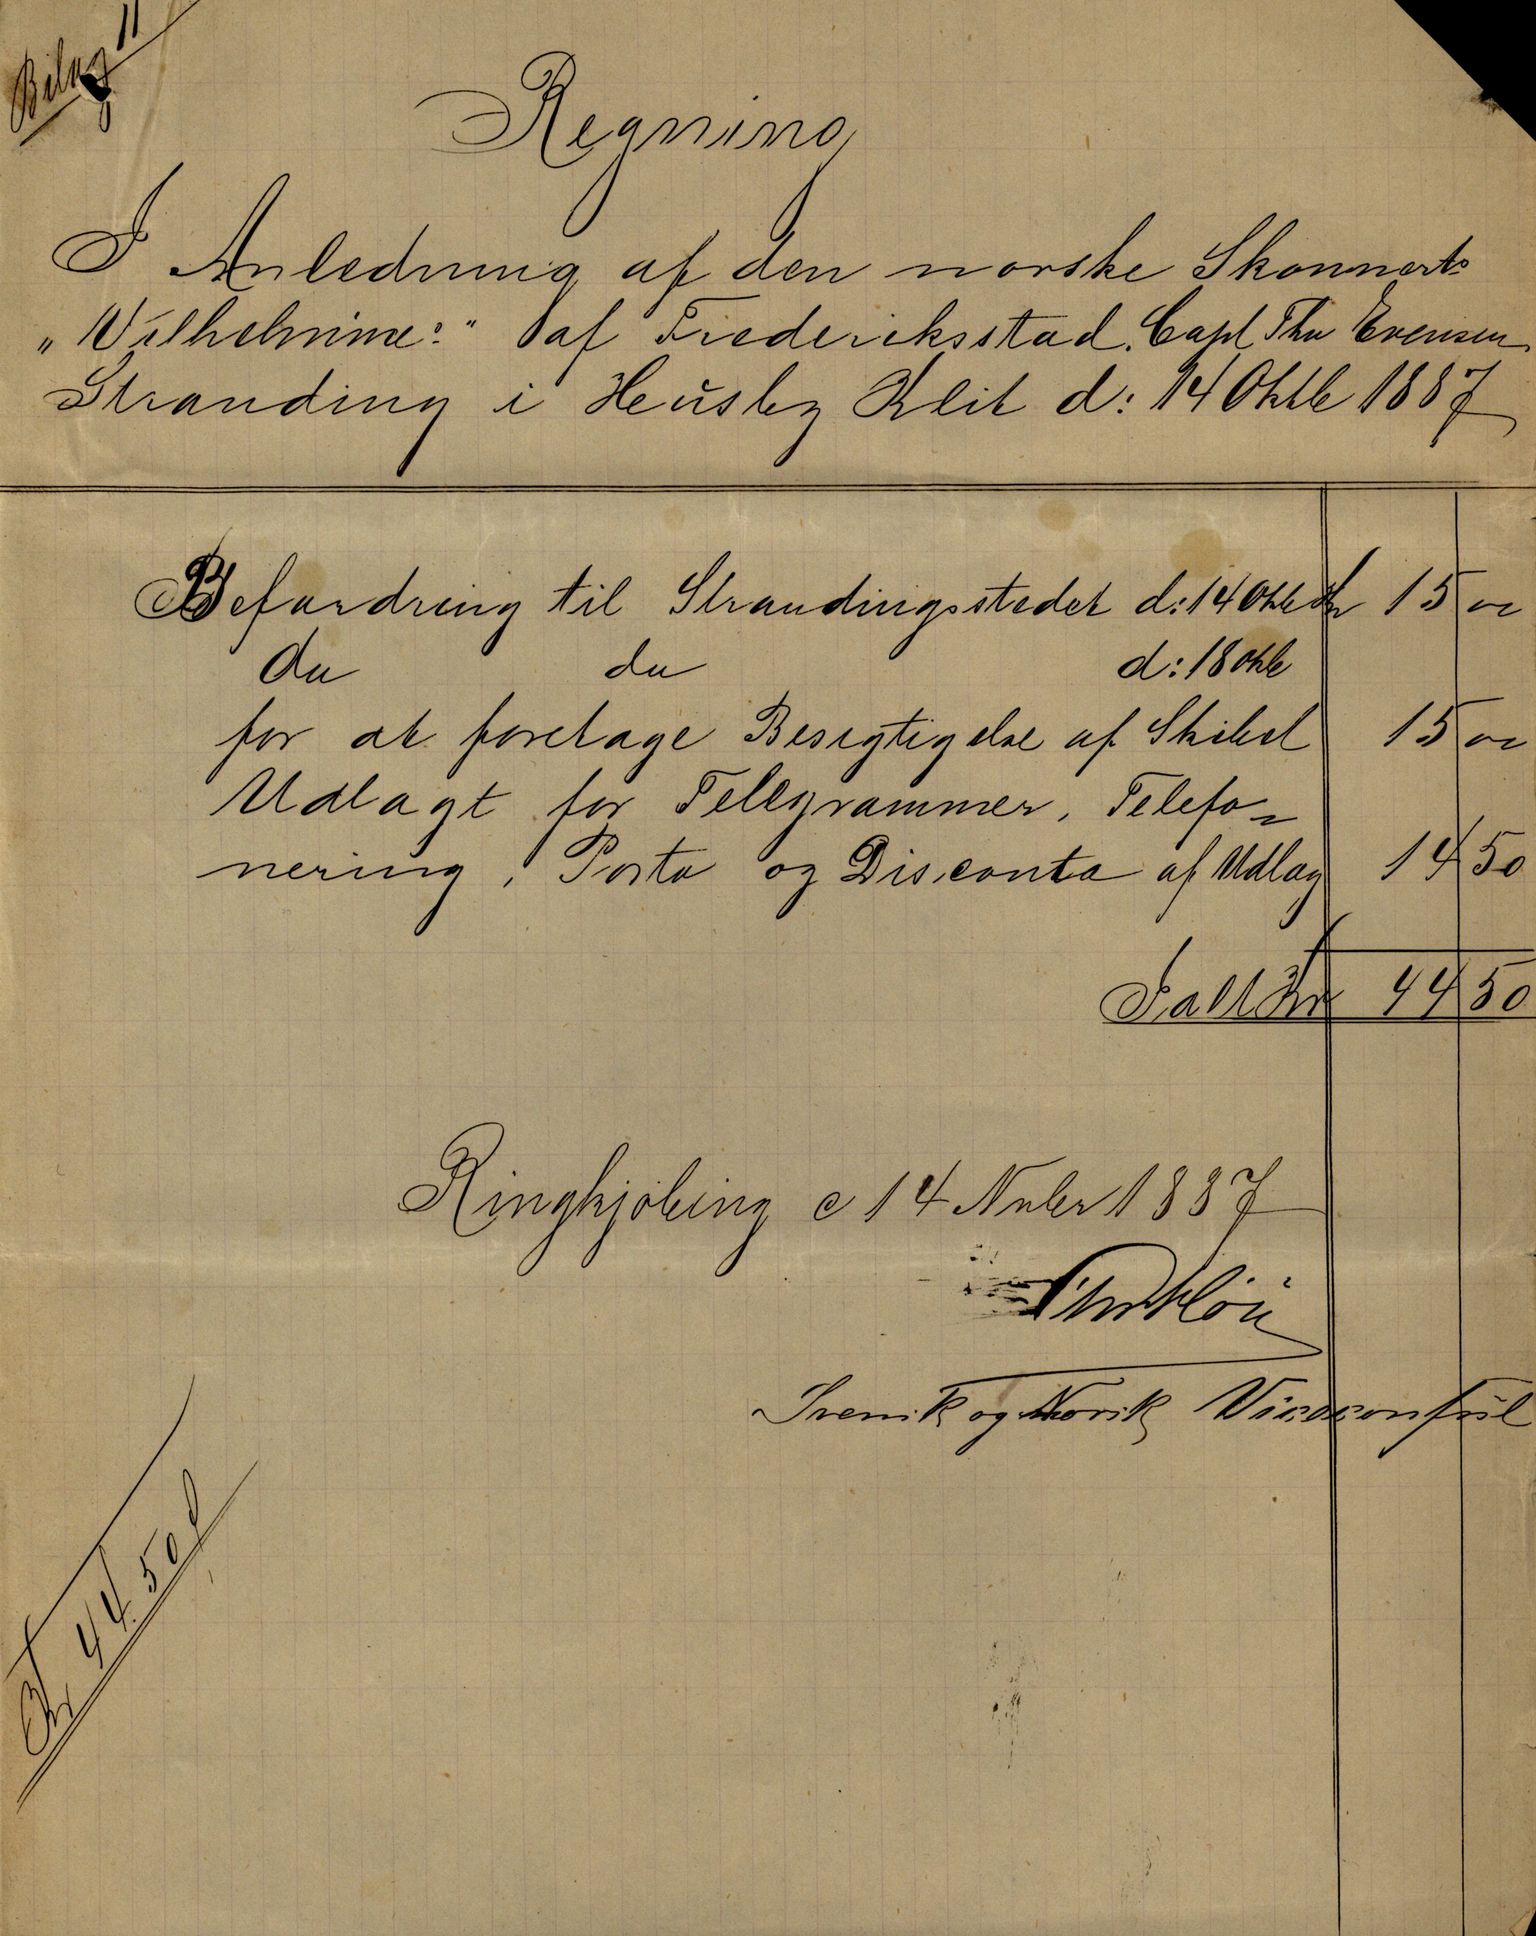 Bilag 11
Regning
I Anledning af den norske Skonnerts
„Wilhelmine:" af Frederiksstad. Capt Thv Evensen
Stranding i Heusby Klit d: 14 Oktb 1887
Befordring til Strandingsstedet d: 14 Oktb Kr 15 00
do do d: 18 Oktb
for at foretage Besigtigelse af Skibet 15 00
Udlagt for Telegrammer, Telefo=
nering, Porto og Disconto af Udlag 14 50
Ialt Kr 44 50
Ringkjøbing d 14 Nvbr 1887
Svensk og Norsk Vicekonsul
Kr 44. 50